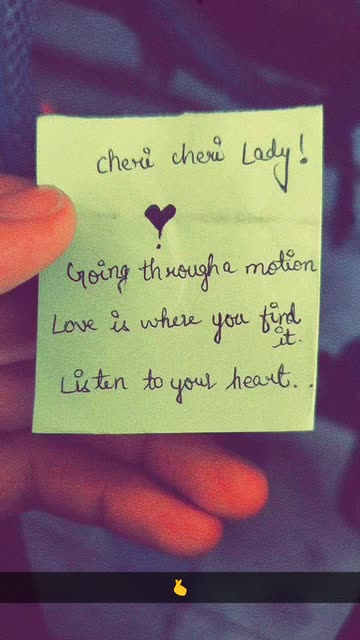 cheri cheri Lady!
Going through a motion
Love is where you find
it.
Listen to your heart..